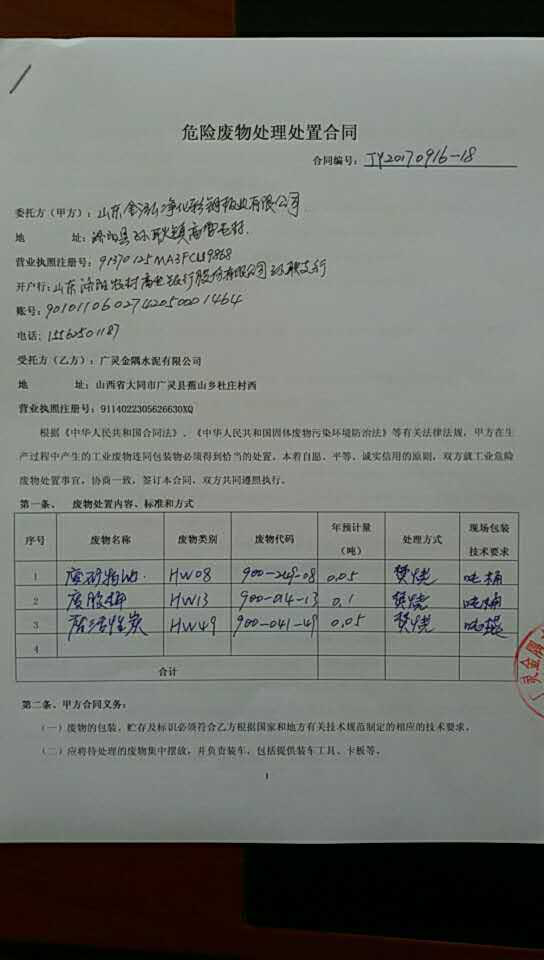 危险废物处理处置合同
合同编号：JY20170916-18
委托方（甲方）：山东金泓净化彩钢板业有限公司
地 址：济阳县孙耿镇高雷毛村
营业执照注册号：91370125MA3FCL9868
开户行：山东济阳农村商业银行股份有限公司孙耿支行
账号：9010110602742050001464
电话：15562501187
受托方（乙方）：广灵金隅水泥有限公司
地 址：山西省大同市广灵县蕉山乡杜庄村西
营业执照注册号：9114022305626630XQ
根据《中华人民共和国合同法》、《中华人民共和国固体废物污染环境防治法》等有关法律法规，甲方在生
产过程中产生的工业废物连同包装物必须得到恰当的处置。本着自愿、平等、诚实信用的原则，双方就工业危险
废物处置事宜，协商一致，签订本合同，双方共同遵照执行。
第一条、 废物处置内容、标准和方式
序号 废物名称 废物类别 废物代码 年预计量（吨） 处理方式 现场包装技术要求
1 废矿物油 HW08 900-249-08 0.05 焚烧 吨桶
2 废胶桶 HW13 900-014-13 0.1 焚烧 吨桶
3 废活性炭 HW49 900-041-49 0.05 焚烧
4
合计
第二条、甲方合同义务：
（一）废物的包装、贮存及标识必须符合乙方根据国家和地方有关技术规范制定的相应的技术要求。
（二）应将待处理的废物集中摆放，并负责装车，包括提供装车工具、卡板等。
1